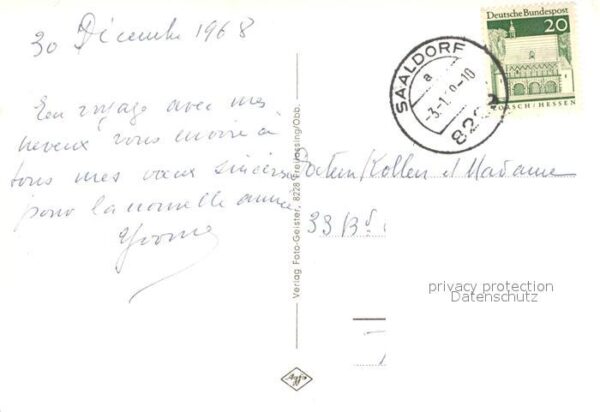 30 Décembre 1968
En voyage avec mes
neveux vous envoie à
tous mes vœux sincères
pour la nouvelle année
Yvonne
Verlag Foto-Geister, 8228 Freilassing/Obb.
Deutsche Bundespost
20
LORSCH/HESSEN
SAALDORF
a
-3.-1. 9-10
822
Kollen et Madame
33 Bd
privacy protection
Datenschutz
Agfa